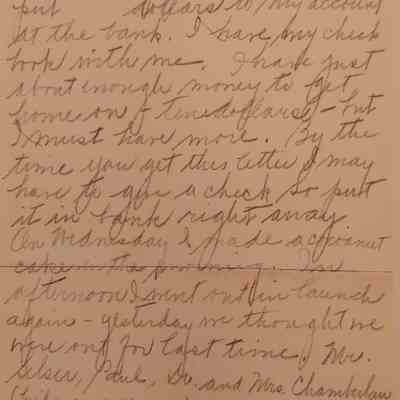 put dollars to my account
at the bank. I have my check
book with me. I have just
about enough money to get
home on (ten dollars) - but
I must have more. By the
time you get this letter I may
have to give a check so put
it in bank right away
On Wednesday I made a cocoanut
cake in the morning. In
afternoon I went out in launch
again - yesterday we thought we
were out for last time. Mr.
Paul, Dr. and Mrs Chamberlain